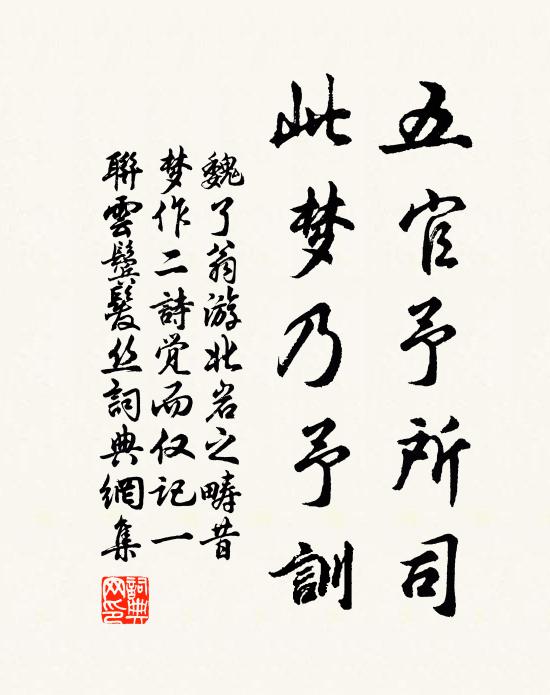 五官予所司
此梦乃予訓
魏了翁游北岩之畴昔
梦作二詩觉而仅记一
聯雲鬟髮丝詞典網集
詞典网印